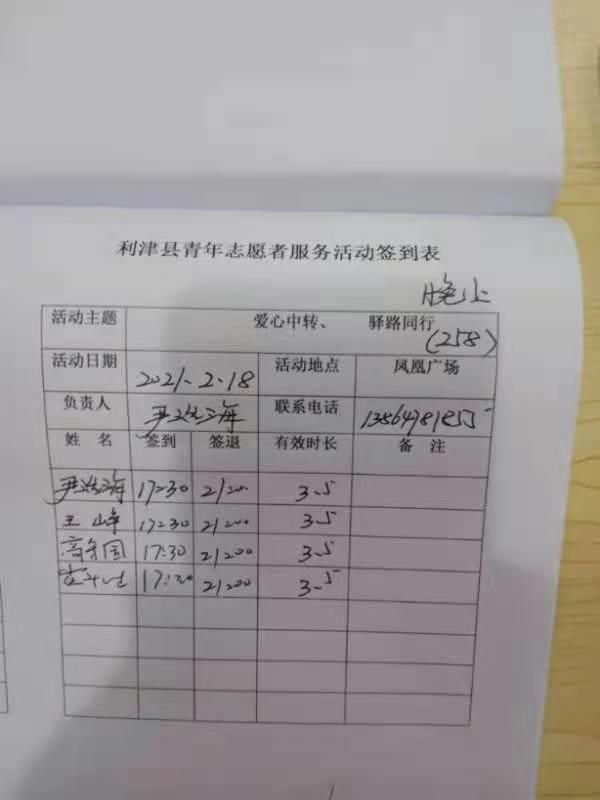 利津县青年志愿者服务活动签到表
晚上
活动主题 爱心中转、 驿路同行
(258)
活动日期 2021.2.18 活动地点 凤凰广场
负责人 海 联系电话
姓 名 签到 签退 有效时长 备 注
海 17:30 21:00 3.5
王 峰 17:30 21:00 3.5
高守国 17:30 21:00 3.5
21:00 3.5